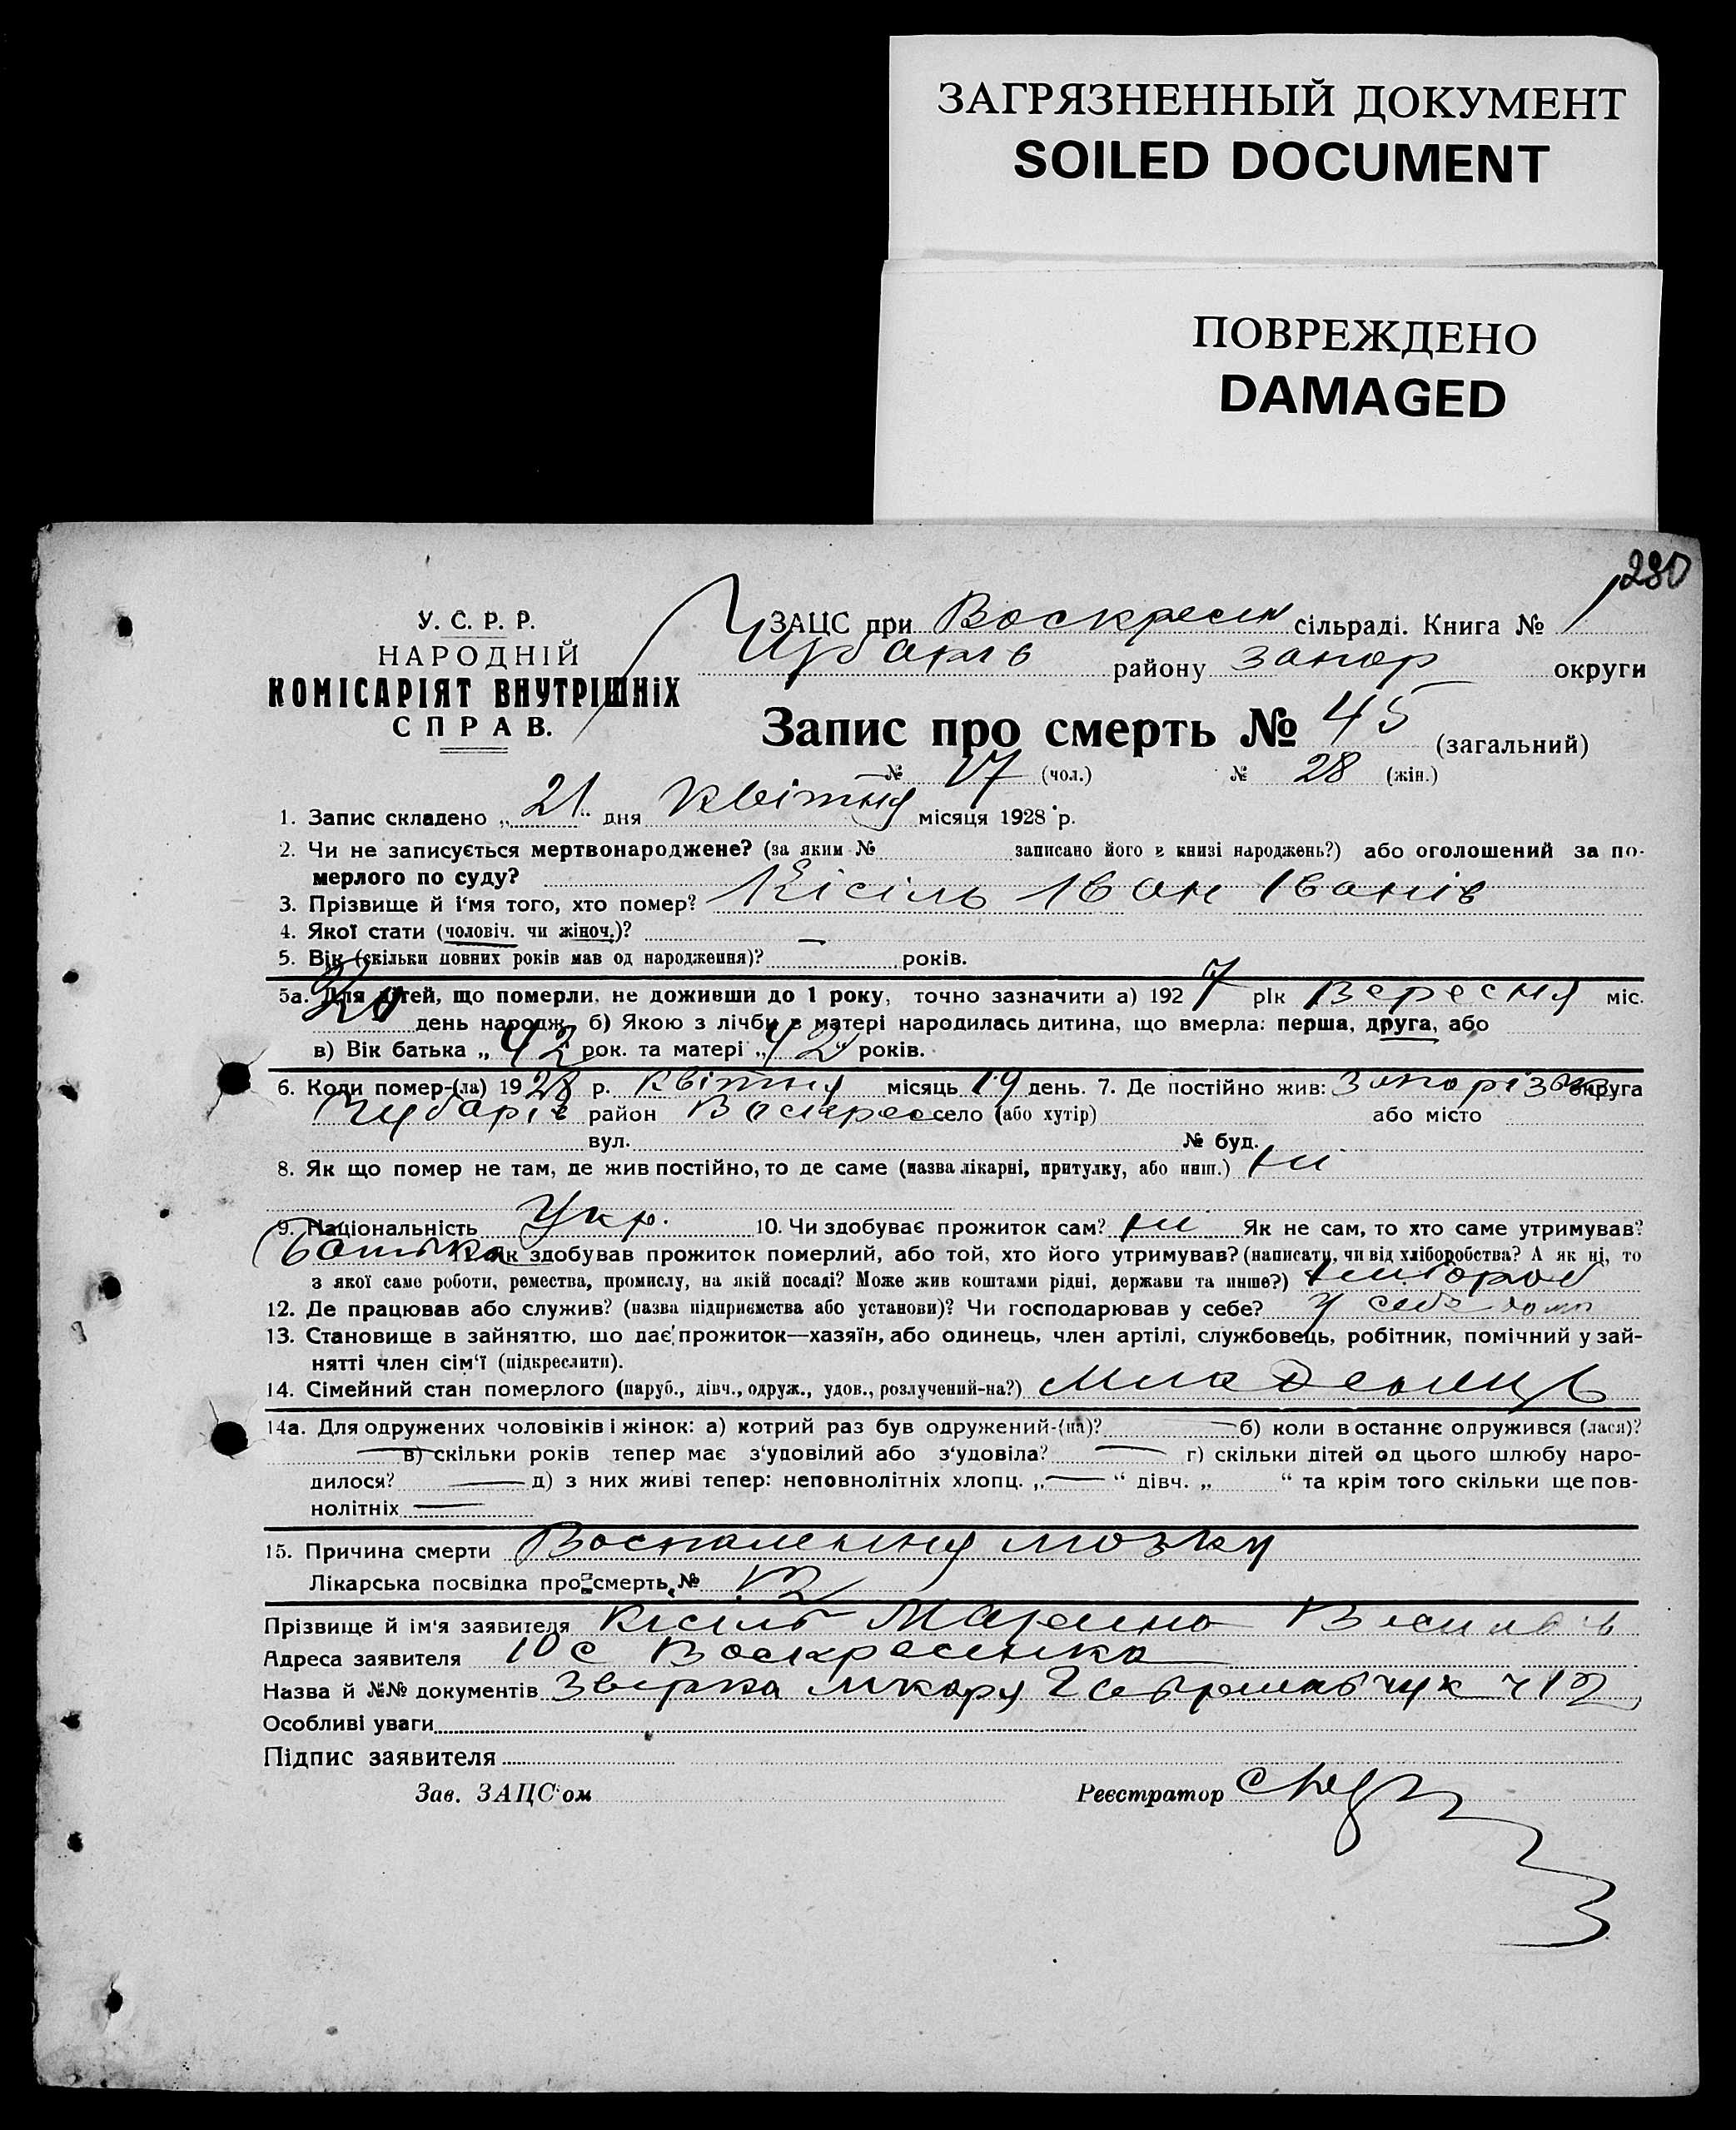 ЗАГРЯЗНЕННЫЙ ДОКУМЕНТ
SOILED DOCUMENT
ПОВРЕЖДЕНО
DAMAGED
280
У. С. Р. Р.
НАРОДНІЙ
КОМІСАРІЯТ ВНУТРІШНІХ
СПРАВ.
ЗАЦС при Воскресен сільраді. Книга № 1
Чубарів району Запор округи
Запис про смерть № 45 (загальний)
№ 17 (чол.) № 28 (жін.)
1. Запис складено „21" дня Квітня місяця 1928 р.
2. Чи не записується мертвонароджене? (за яким № записано його в книзі народжень?) або оголошений за по-
мерлого по суду?
3. Прізвище й і'мя того, хто помер? Кісіль Іван Іванів
4. Якої стати (чоловіч. чи жіноч.)? —
5. Вік (скільки повних років мав од народження)? років.
5а. Для дітей, що померли, не доживши до 1 року, точно зазначити а) 1927 рік Вересня міс.
день народж. б) Якою з лічби в матері народилась дитина, що вмерла: перша, друга, або
в) Вік батька „42" рок. та матері „42" років.
6. Коли помер-(ла) 1928 р. квітня місяць 19 день. 7. Де постійно жив: Запорізька округа
Чубарів район Воскрес село (або хутір) або місто
вул. № буд.
8. Як що помер не там, де жив постійно, то де саме (назва лікарні, притулку, або инш.) ні
9. Національність Укр. 10. Чи здобуває прожиток сам? ні Як не сам, то хто саме утримував?
Батько Як здобував прожиток померлий, або той, хто його утримував? (написати, чи від хліборобства? А як ні, то
з якої саме роботи, ремества, промислу, на якій посаді? Може жив коштами рідні, держави та инше?) хлібороб
12. Де працював або служив? (назва підприємства або установи)? Чи господарював у себе? у себе дома
13. Становище в зайняттю, що дає прожиток—хазяїн, або одинець, член артілі, службовець, робітник, помічний у зай-
нятті член сім'ї (підкреслити).
14. Сімейний стан померлого (паруб., дівч., одруж., удов., розлучений-на?) младенець
14а. Для одружених чоловіків і жінок: а) котрий раз був одружений-(на)? — б) коли востаннє одружився (лася)?
— в) скільки років тепер має з'удовілий або з'удовіла? — г) скільки дітей од цього шлюбу наро-
дилося? — д) з них живі тепер: неповнолітніх хлопц. „—" дівч. „ " та крім того скільки ще пов-
нолітніх —
15. Причина смерти Воспалення мозку
Лікарська посвідка про смерть №
Прізвище й ім'я заявителя Кісіль Марина
Адреса заявителя с Воскресенка
Назва й №№ документів
Особливі уваги
Підпис заявителя
Зав. ЗАЦС'ом Реєстратор